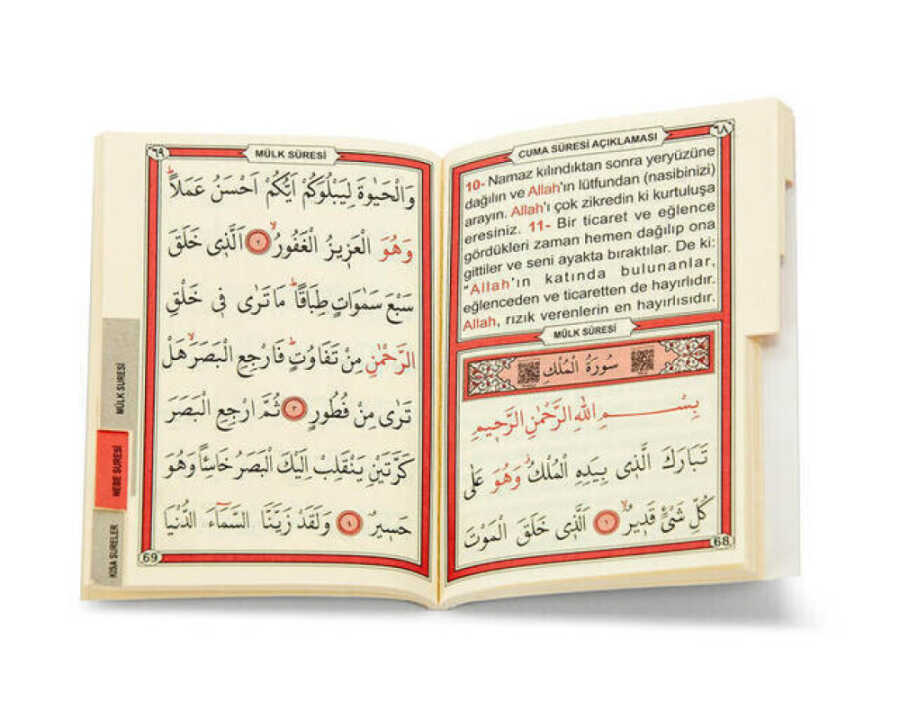 ٦٨
CUMA SÛRESİ AÇIKLAMASI
10- Namaz kılındıktan sonra yeryüzüne
dağılın ve Allah'ın lütfundan (nasibinizi)
arayın. Allah'ı çok zikredin ki kurtuluşa
eresiniz. 11- Bir ticaret ve eğlence
gördükleri zaman hemen dağılıp ona
gittiler ve seni ayakta bıraktılar. De ki:
"Allah'ın katında bulunanlar,
eğlenceden ve ticaretten de hayırlıdır.
Allah, rızık verenlerin en hayırlısıdır.
MÜLK SÛRESİ
سُورَةُ الْمُلْكِ
بِسْمِ اللهِ الرَّحْمٰنِ الرَّحِيمِ
تَبَارَكَ الَّذٖى بِيَدِهِ الْمُلْكُۘ وَهُوَ عَلٰى
كُلِّ شَىْءٍ قَدٖيرٌۙ ١ اَلَّذٖى خَلَقَ الْمَوْتَ
68
٦٩
MÜLK SÛRESİ
وَالْحَيٰوةَ لِيَبْلُوَكُمْ اَيُّكُمْ اَحْسَنُ عَمَلاًؕ
وَهُوَ الْعَزٖيزُ الْغَفُورُۙ ٢ اَلَّذٖى خَلَقَ
سَبْعَ سَمٰوَاتٍ طِبَاقًاؕ مَا تَرٰى فٖى خَلْقِ
الرَّحْمٰنِ مِنْ تَفَاوُتٍؕ فَارْجِعِ الْبَصَرَۙ هَلْ
تَرٰى مِنْ فُطُورٍ ٣ ثُمَّ ارْجِعِ الْبَصَرَ
كَرَّتَيْنِ يَنْقَلِبْ اِلَيْكَ الْبَصَرُ خَاسِئًا وَهُوَ
حَسٖيرٌ ٤ وَلَقَدْ زَيَّنَّا السَّمَٓاءَ الدُّنْيَا
69
MÜLK SURESİ
NEBE SURESİ
KISA SURELER